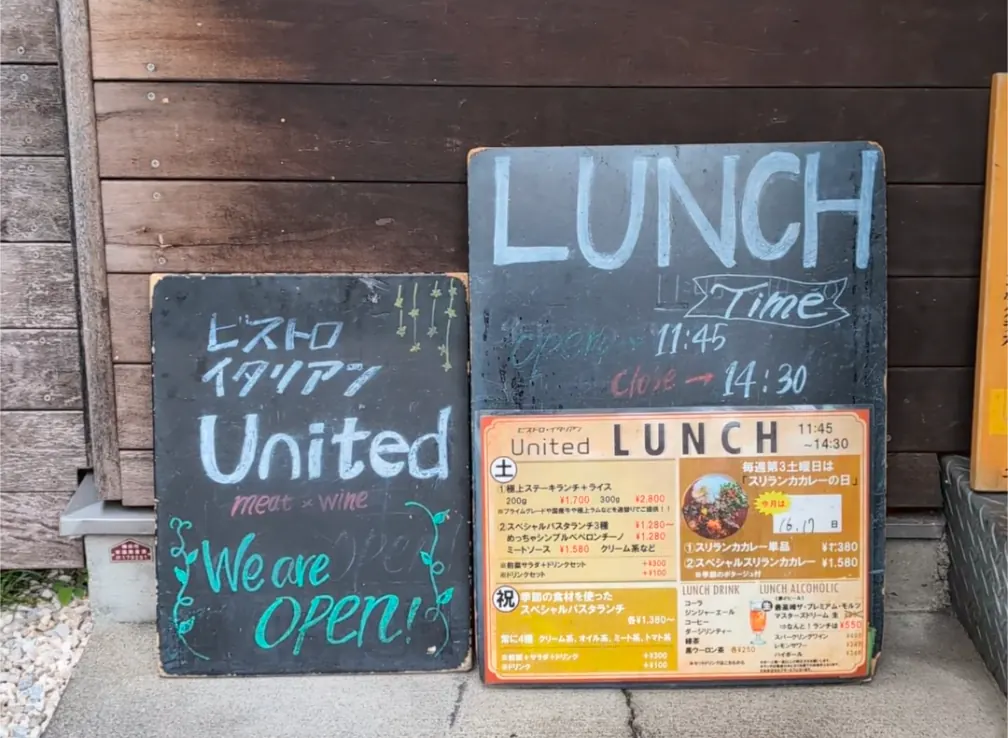 ビストロ
イタリアン
United
meat × wine
We are
OPEN!
LUNCH
Time
open 11:45
close → 14:30
ビストロ・イタリアン
United LUNCH 11:45
~14:30
土
1.極上ステーキランチ+ライス
200g ¥1,700 300g ¥2,800
2.スペシャルパスタランチ3種 ¥1,280~
めっちゃシンプルペペロンチーノ ¥1,280
ミートソース ¥1,580 クリーム系など
※前菜サラダ+ドリンクセット +¥300
※ドリンクセット +¥100
祝 季節の食材を使った
スペシャルパスタランチ
各¥1,380~
常に4種 クリーム系、オイル系、ミート系、トマト系
※前菜+サラダ+ドリンク +¥300
※ドリンク +¥100
毎週第3土曜日は
「スリランカカレーの日」
今月は
16.17 日
①スリランカカレー単品 ¥1,380
②スペシャルスリランカカレー ¥1,580
※季節のポタージュ付
LUNCH DRINK
コーラ
ジンジャーエール
コーヒー
ダージリンティー
緑茶
黒ウーロン茶 各¥250
LUNCH ALCOHOLIC
生 最高峰ザ・プレミアム・モルツ
マスターズドリーム 生
⇒なんと!ランチは¥550
スパークリングワイン
レモンサワー
ハイボール